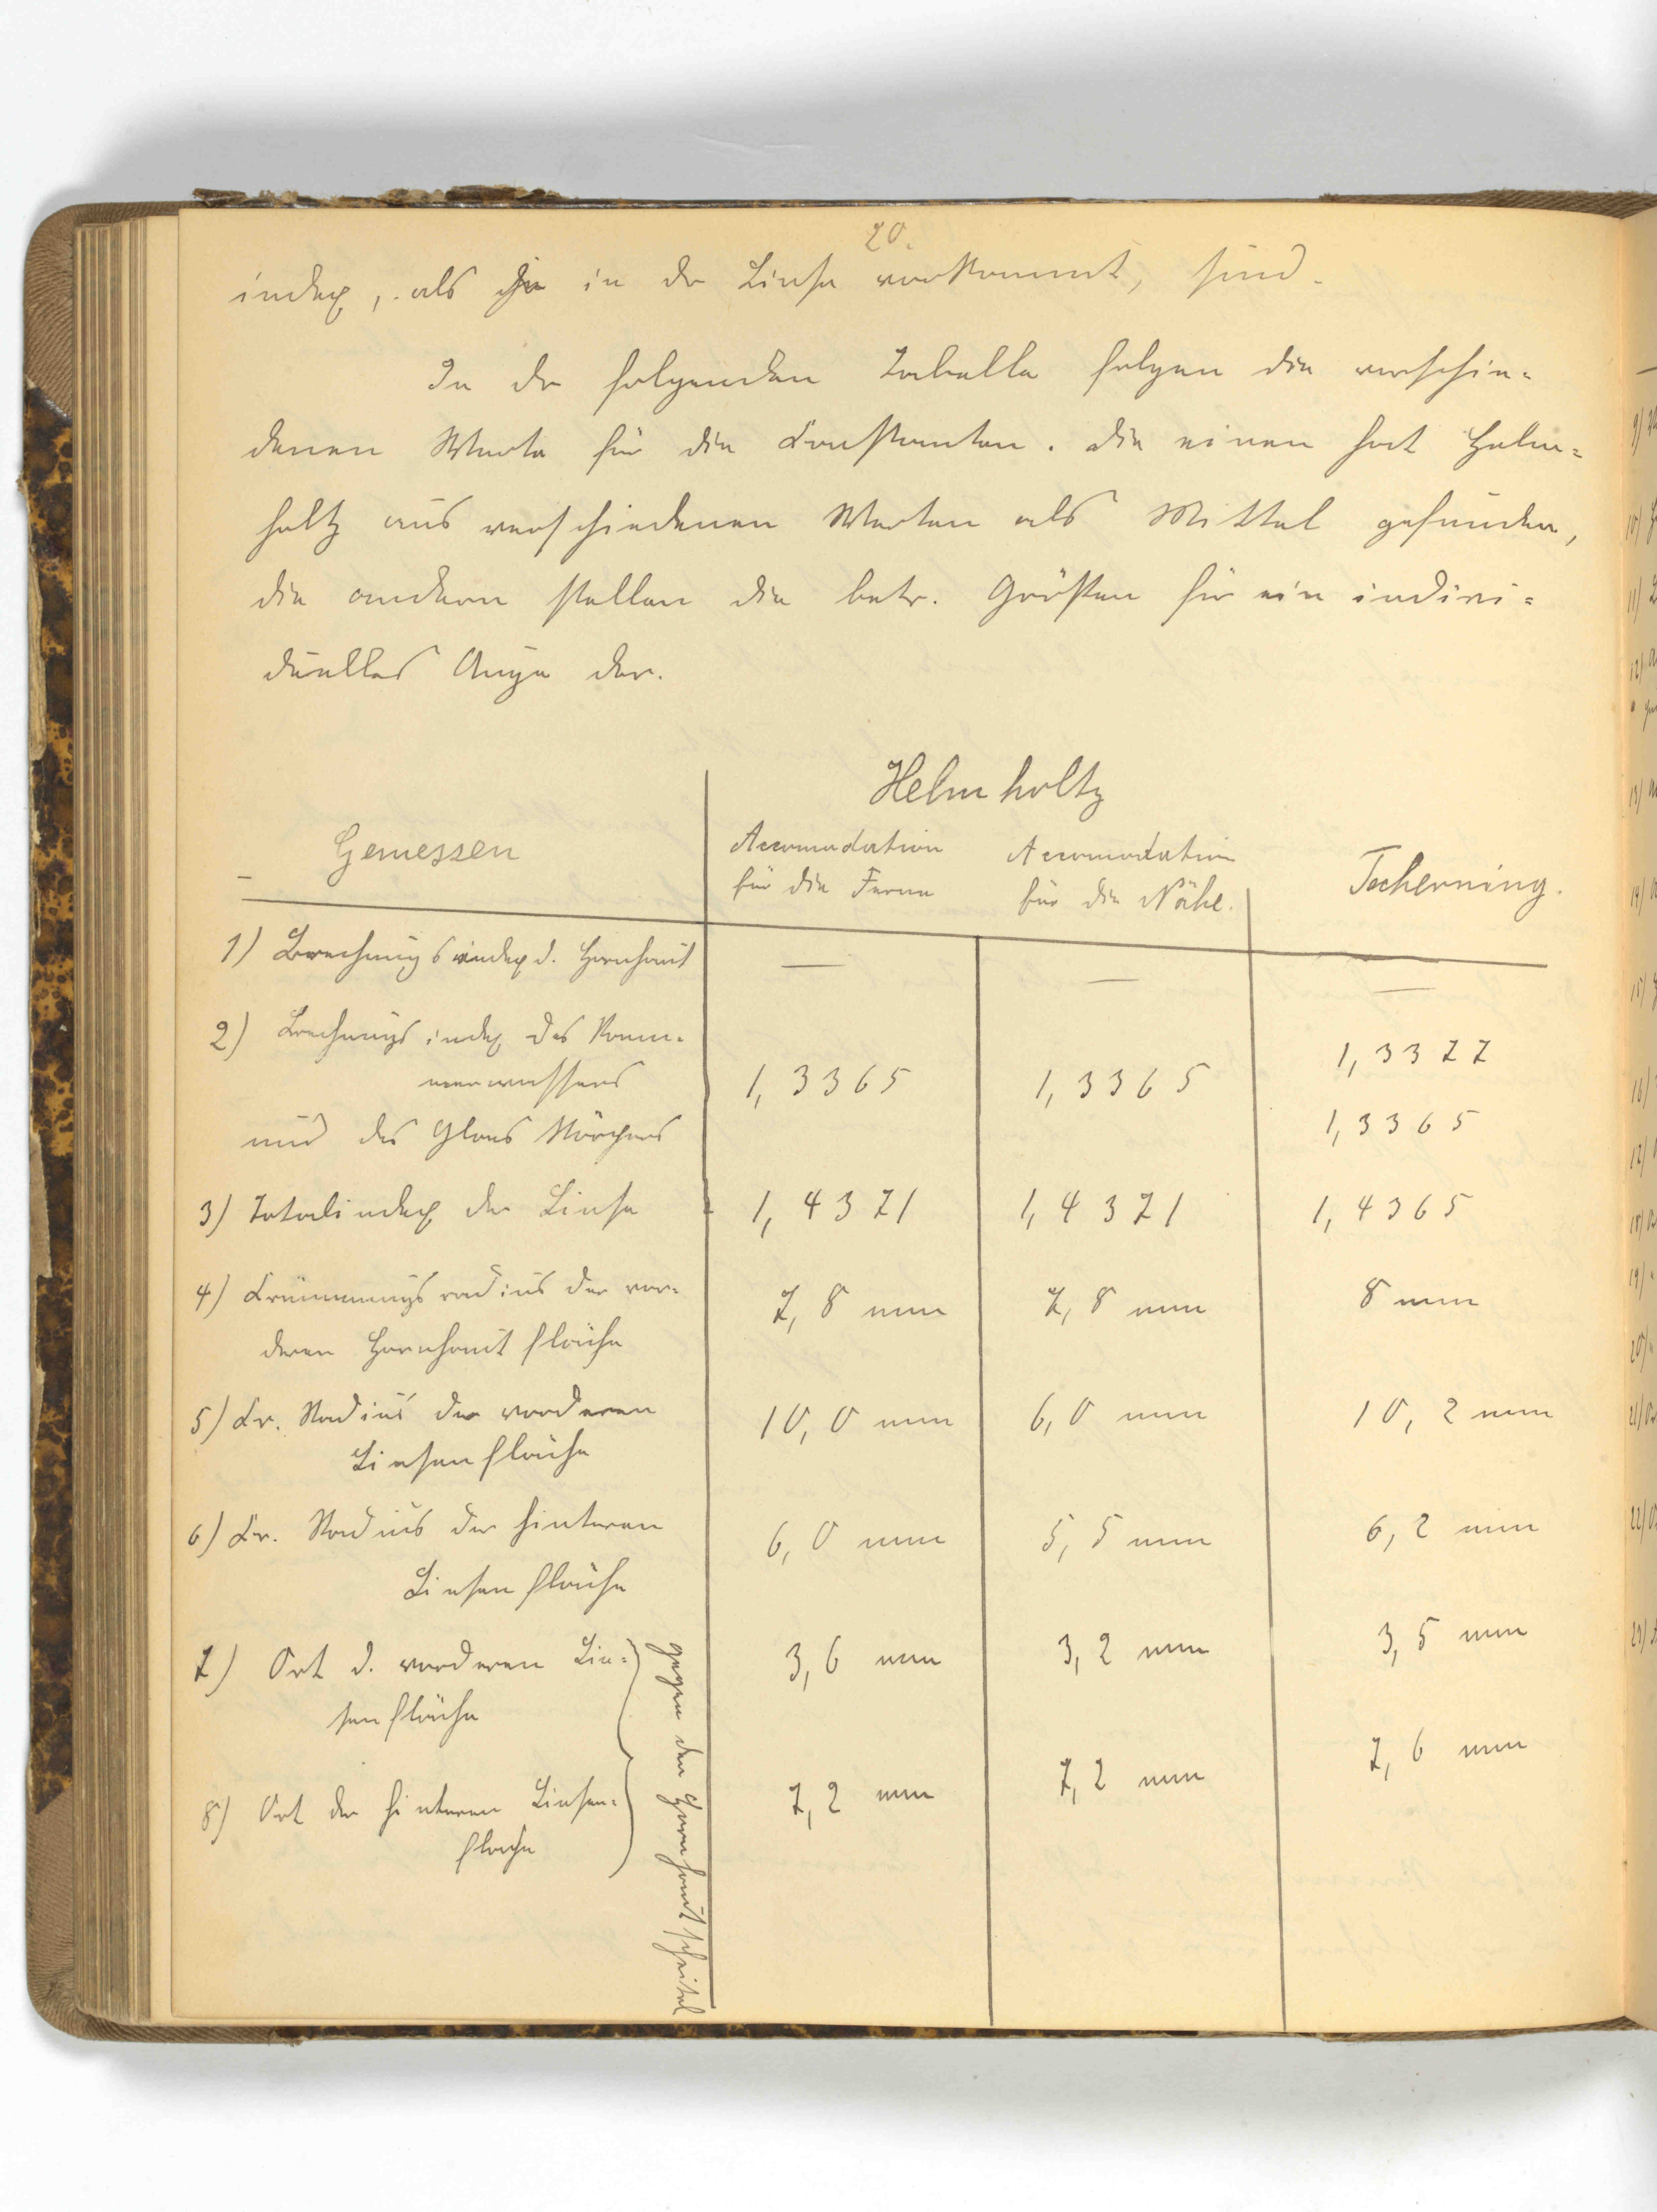 20.
index, als in der Linse vorkommt, sind.
In der folgenden Tabelle folgen die verschie=
denen Werte für die Constanten. Die einen hat Helm=
holtz aus verschiedenen Werten als Mittel gefunden,
die andern stellen die betr. Größen für ein indivi=
duelles Auge dar.
Helmholtz
Gemessen
Accomodation
für die Ferne
Accomodation
für die Nähe.
Tscherning.
1) Brechungsindex d. Hornhaut — — —
2) Brechungsindex des Kam=
merwassers 1,3365 1,3365 1,3377
und des Glaskörpers 1,3365
3) Totalindex der Linse 1,4371 1,4371 1,4365
4) Krümmungsradius der vor=
deren Hornhautfläche 7,8 mm 7,8 mm 8 mm
5) Kr. Radius der vorderen
Linsenfläche 10,0 mm 6,0 mm 10,2 mm
6) Kr. Radius der hinteren
Linsenfläche 6,0 mm 5,5 mm 6,2 mm
7) Ort d. vorderen Lin=
senfläche 3,6 mm 3,2 mm 3,5 mm
8) Ort der hinteren Linsen=
fläche 7,2 mm 7,2 mm 7,6 mm
gegen den Hornhautscheitel
9)
10)
11)
12)
13)
14)
15)
16)
17)
18)
19)
20)
21)
22)
23)